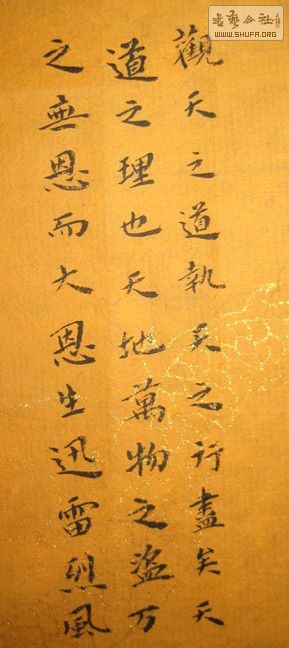 觀天之道執天之行盡矣天
道之理也天地萬物之盜万
之無恩而大恩生迅雷烈風
WWW.SHUFA.ORG